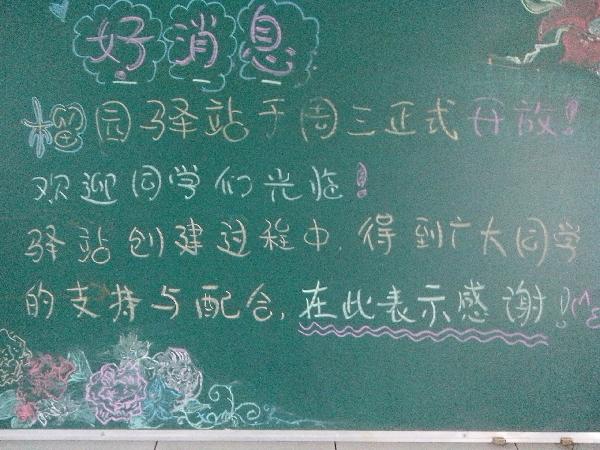 好消息
榴园驿站于周三正式开放!
欢迎同学们光临!
驿站创建过程中,得到广大同学
的支持与配合,在此表示感谢!